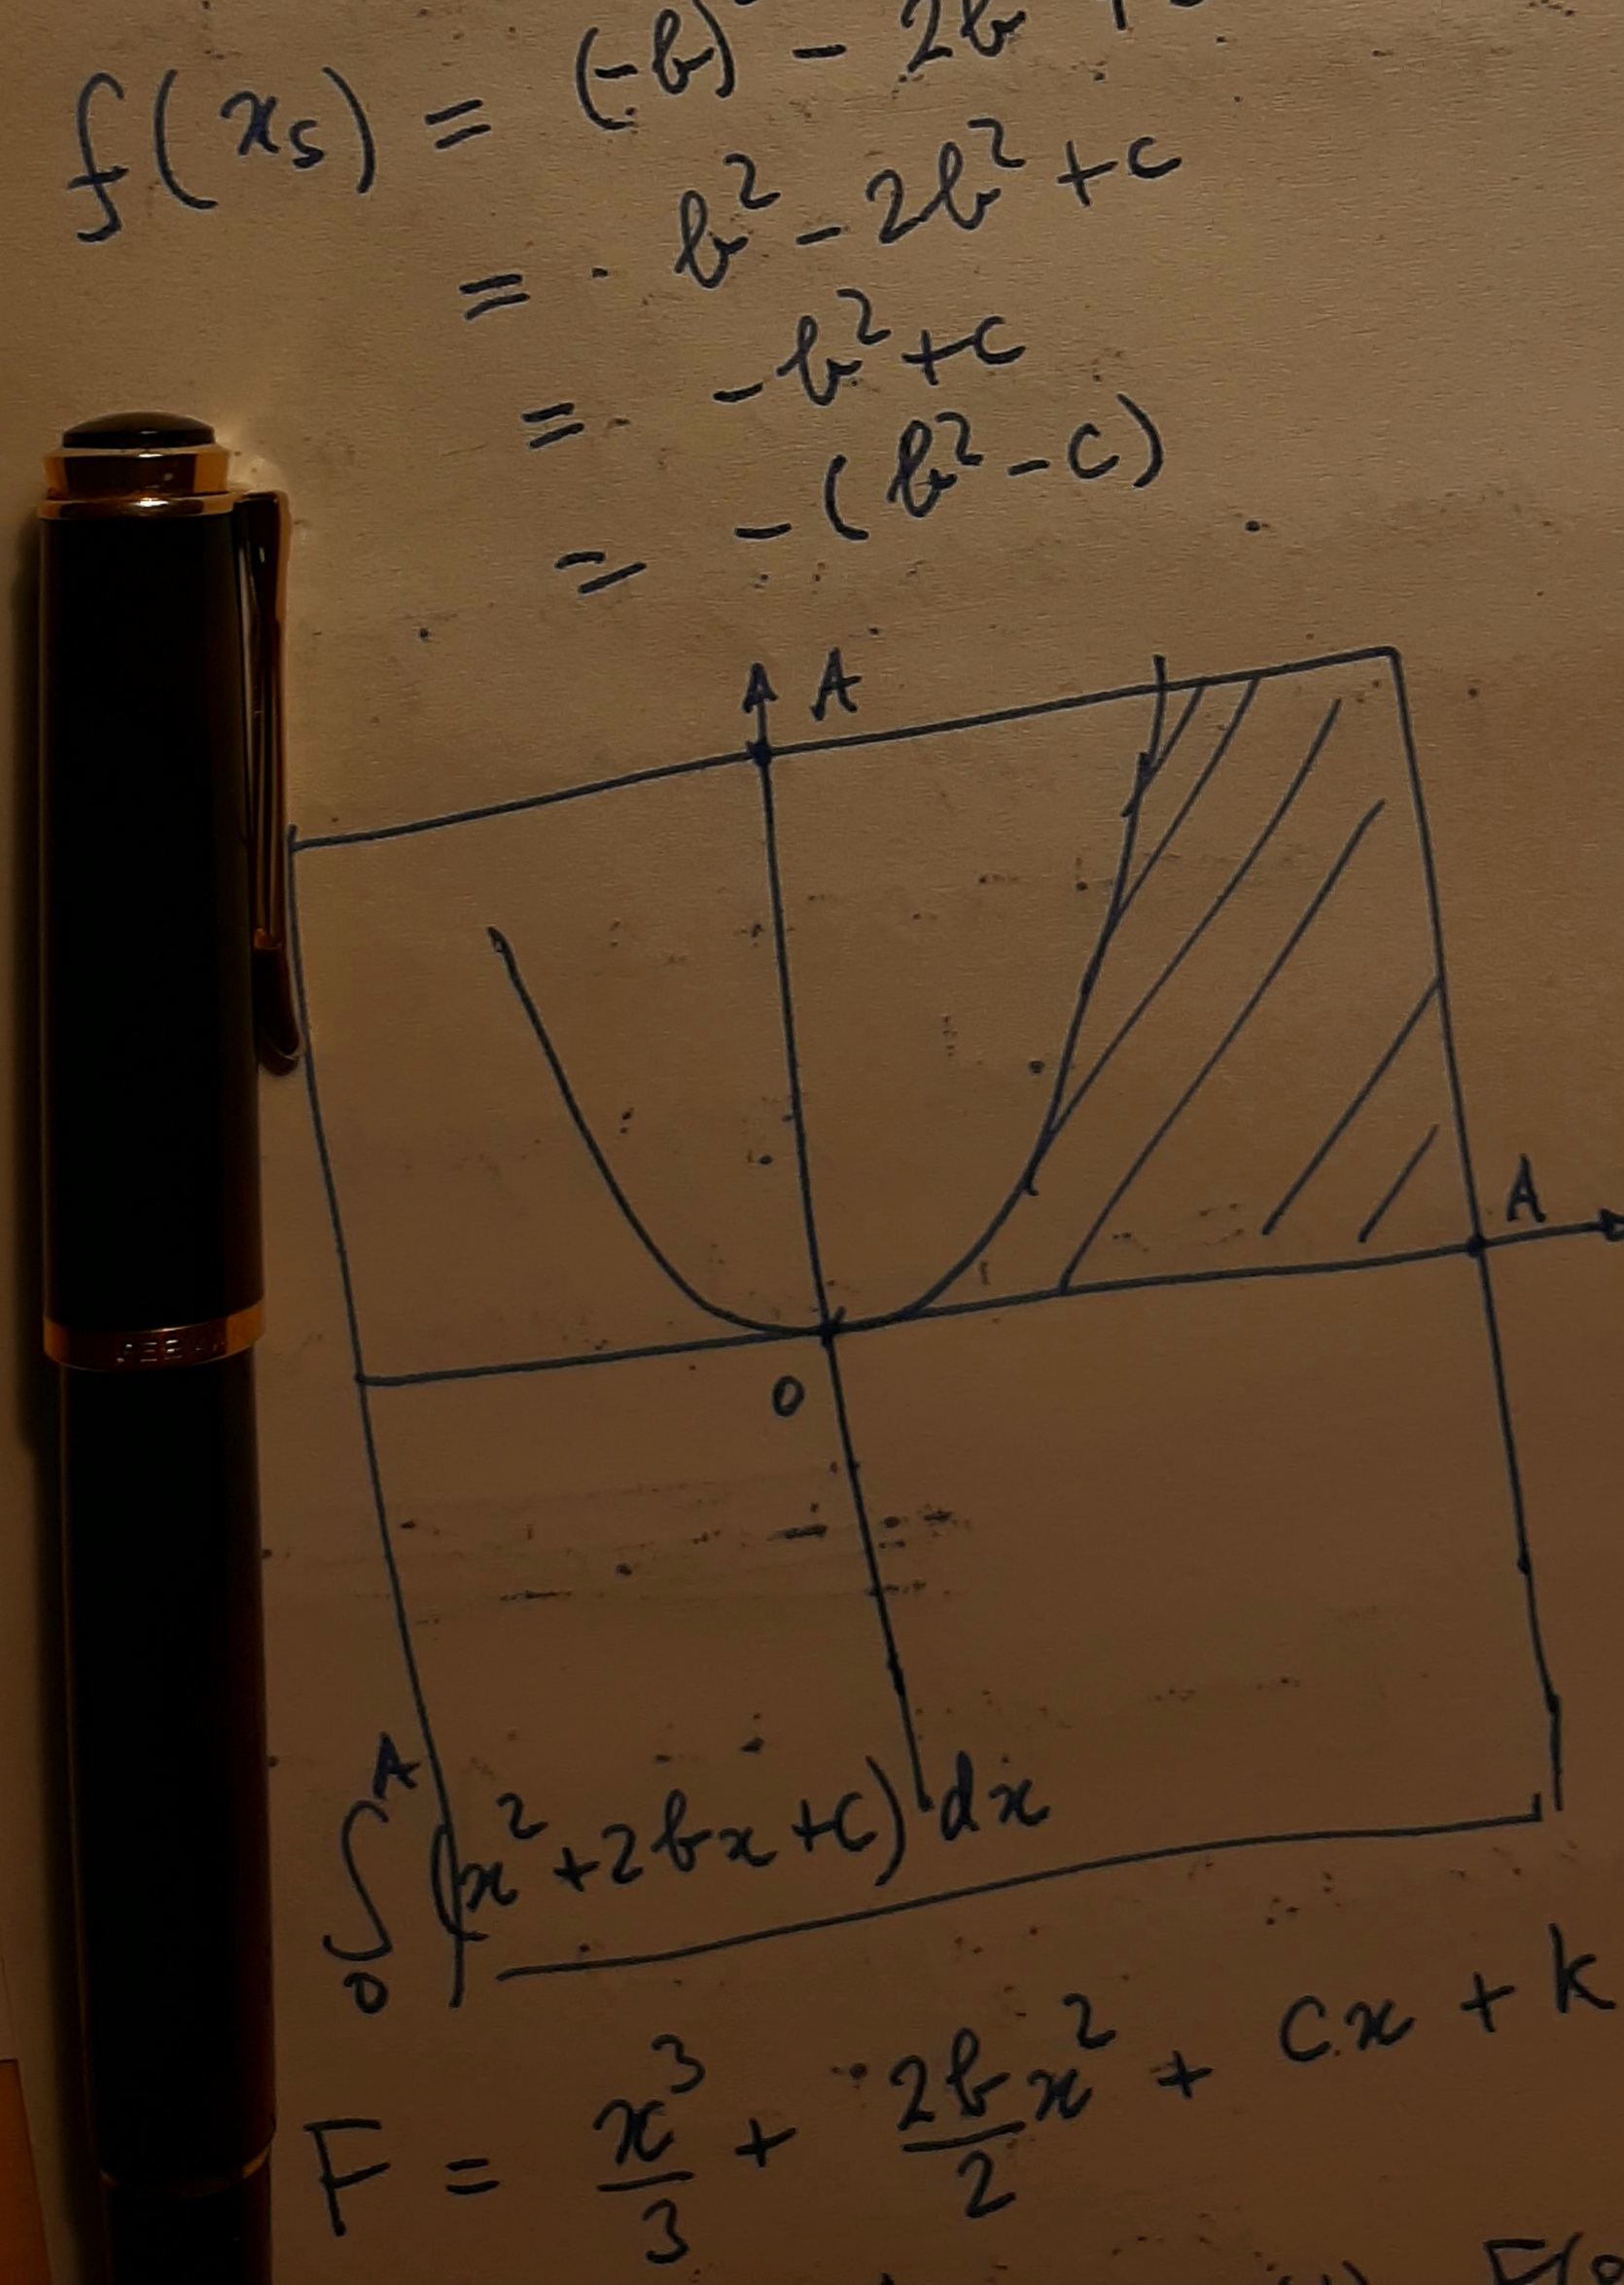 f(x₅) = (-b)² - 2b
= b² - 2b² + c
= -b² + c
= -(b² - c)
A
A
0
∫₀ᴬ (x² + 2bx + c) dx
F = x³/3 + 2b/2 x² + cx + k